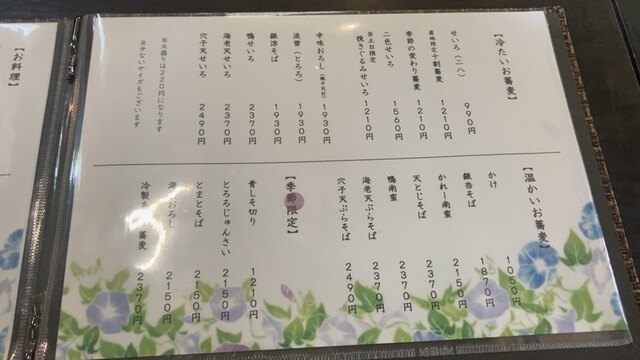 【冷たいお蕎麦】
せいろ（二八） 990円
産地限定十割蕎麦 1210円
季節の変わり蕎麦 1210円
二色せいろ 1560円
※土日限定
挽きぐるみせいろ 1210円
辛味おろし 1930円
淡雪（とろろ） 1930円
銀涼そば 1930円
鴨せいろ 2370円
海老天せいろ 2370円
穴子天せいろ 2490円
※大盛りは220円になります
※少ないサイズもございます
【温かいお蕎麦】
かけ 1050円
銀杏そば 1870円
かれー南蛮 2150円
天とじそば 2370円
鴨南蛮 2370円
海老天ぷらそば 2370円
穴子天ぷらそば 2490円
【季節限定】
青しそ切り 1210円
とろろじゅんさい 2150円
とまとそば 2150円
おろし 2150円
冷製 蕎麦 2370円
【お料理】